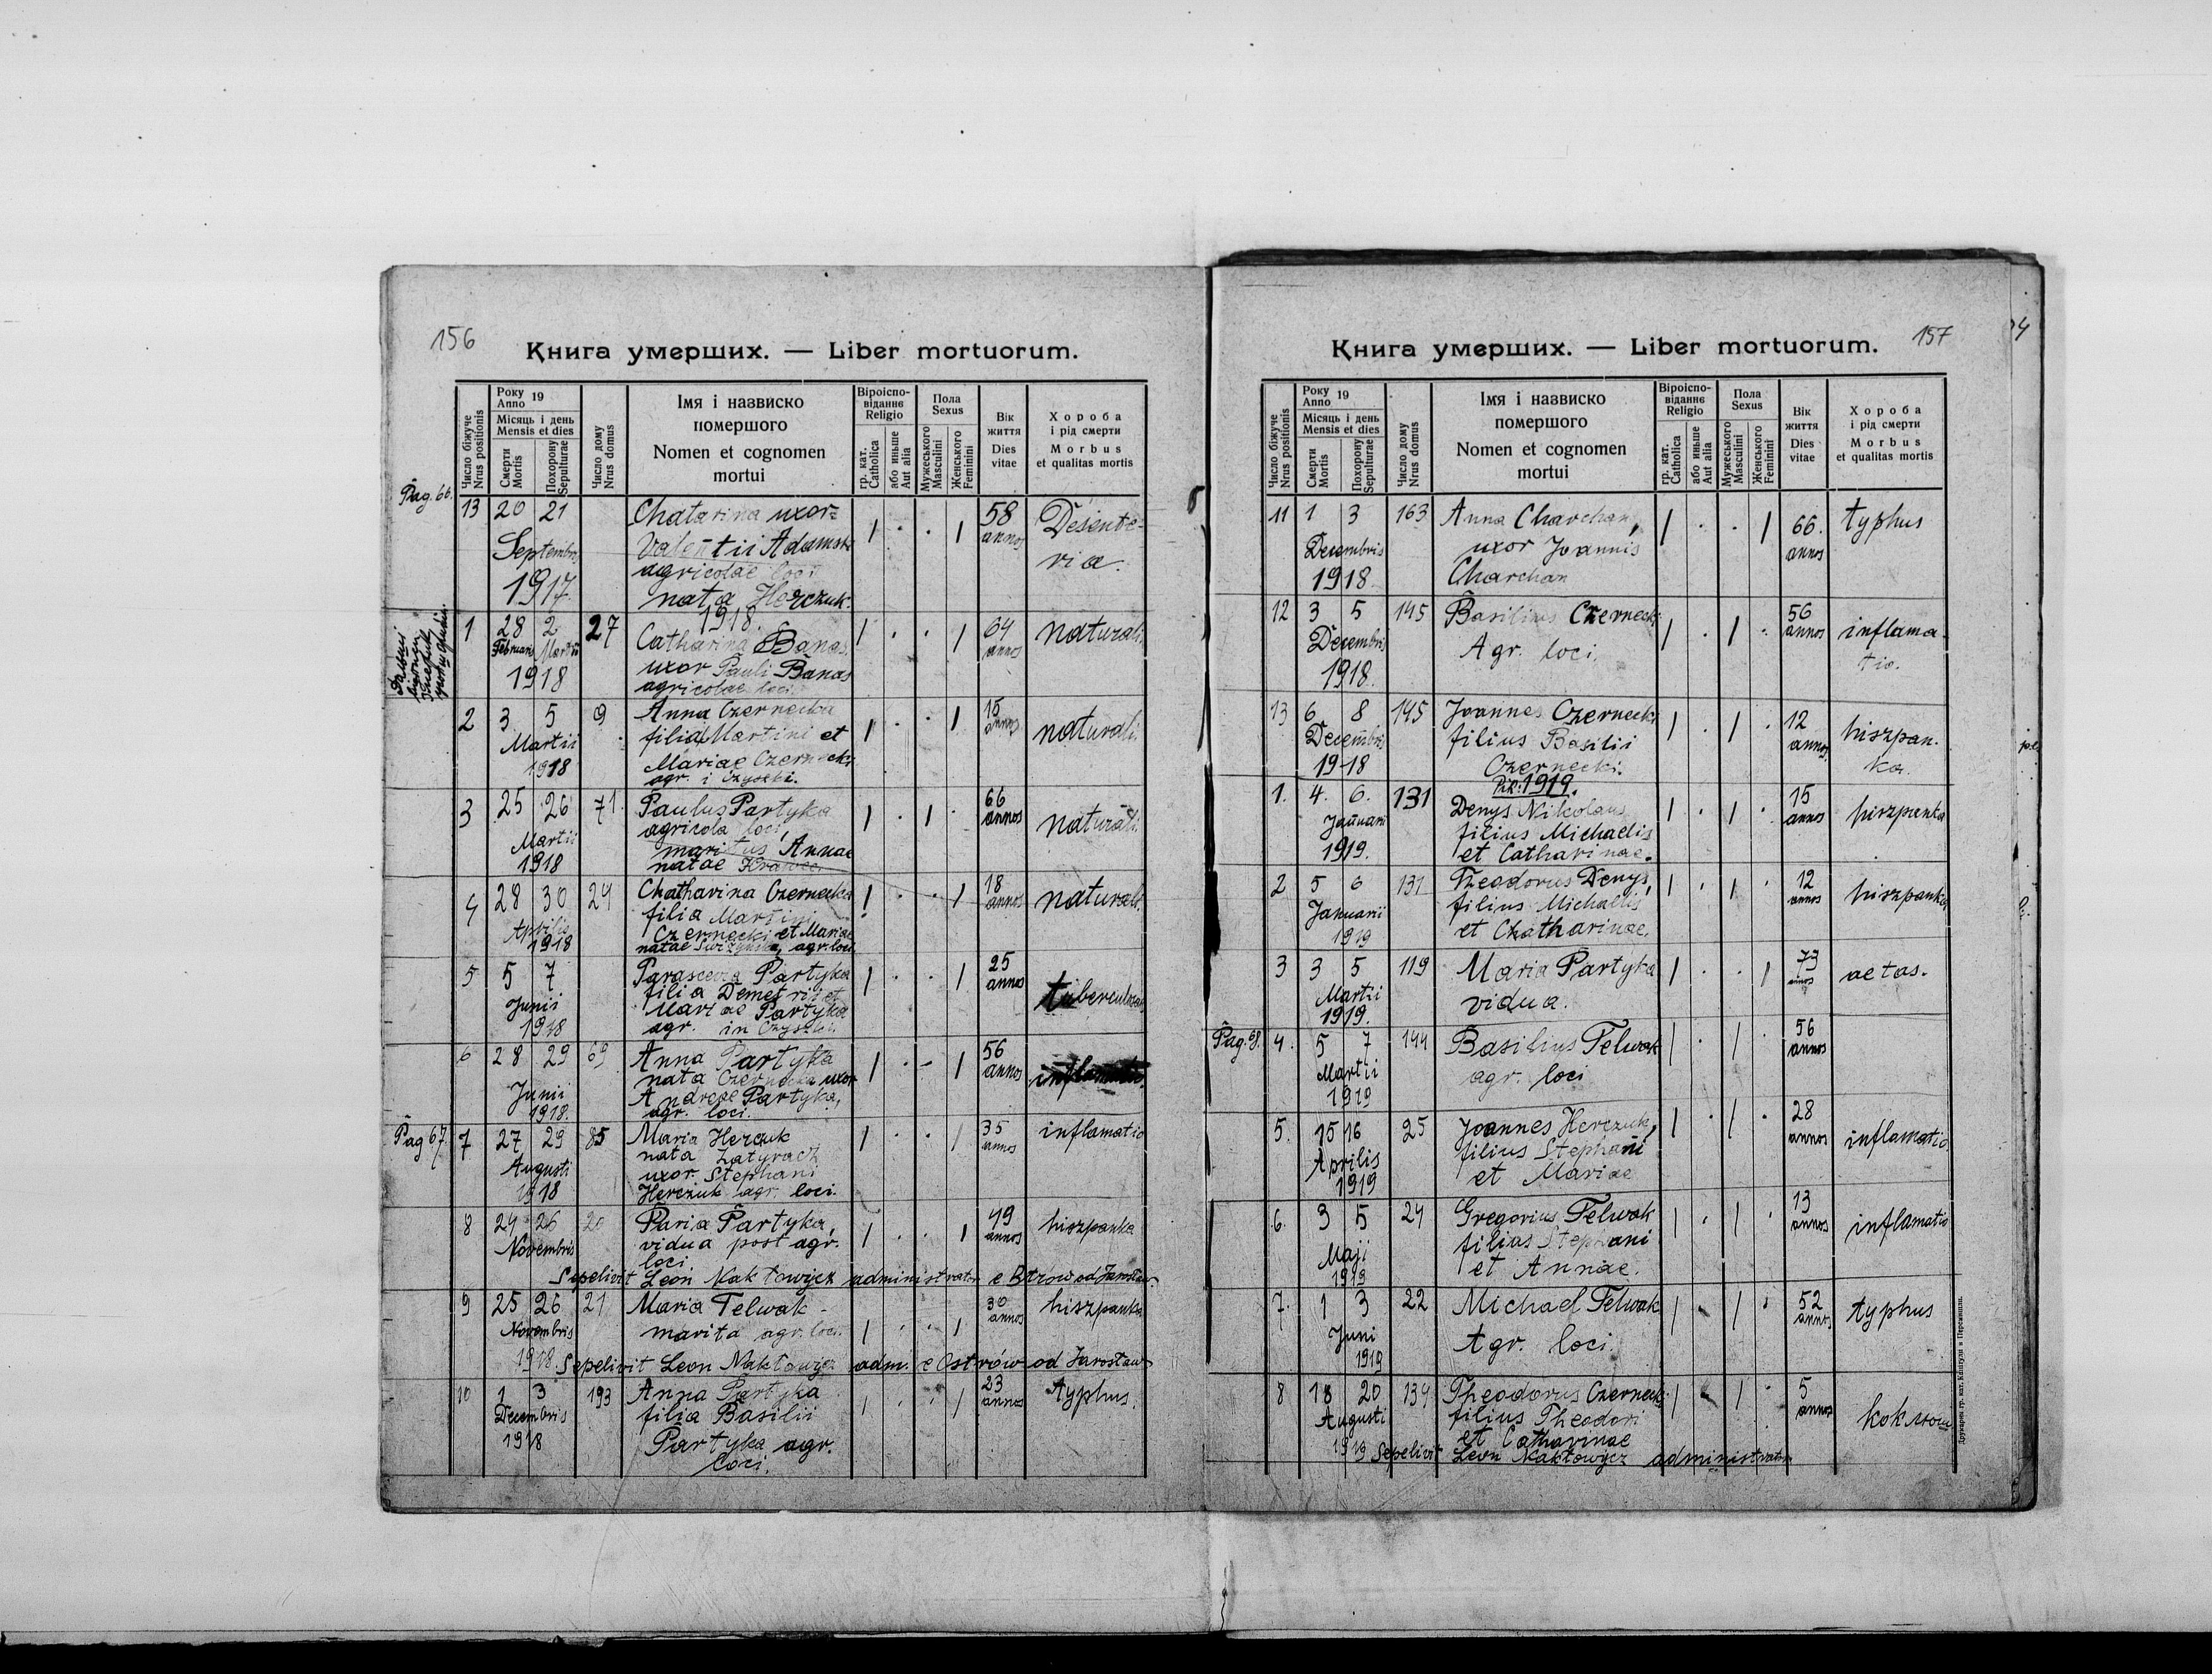 156
Книга умерших. — Liber mortuorum.
Число біжуче
Nrus positionis
Року
Anno 19
Місяць і день
Mensis et dies
Смерти
Mortis
Похорону
Sepulturae
Число дому
Nrus domus
Імя і назвиско
помершого
Nomen et cognomen
mortui
Віроіспо-
віданнє
Religio
гр. кат.
Catholica
або иньше
Aut alia
Пола
Sexus
Мужеського
Masculini
Женського
Feminini
Вік
життя
Dies
vitae
Хороба
і рід смерти
Morbus
et qualitas mortis
Pag. 66.
13 20 21 Chatarina uxor 58 Desente-
Septembris Valentii Adamski annos ria.
agricolae loci
1917. nata Herczuk.
1918.
1 28 2 27 Catharina Banas 64 naturali.
Februarii Martii uxor Pauli Banas annos
1918 agricolae loci.
2 3 5 9 Anna Czernecka 15 naturali.
Martii filia Martini et annos
1918 Mariae Czernecki
agr. i Czyszki.
3 25 26 71. Paulus Partyka 66 naturali.
agricola loci, annos
Martii maritus Annae
1918 natae Krawec
4 28 30 24 Chatharina Czernecka 18 naturali.
Aprilis filia Martini annos
1918 Czernecki et Mariae
natae agr. loci
5 5 7 Parascevia Partyka 25 tuberculosis
Junii filia Demetrii et annos
Mariae Partyka
1918 agr. in Czyszki.
6 28 29 69 Anna Partyka 56 inflamatio
nata Czernecka uxor annos
Junii Andreae Partyka,
1918. agr. loci.
Pag 67. 7 27 29 85 Maria Herczuk 35 inflamatio
nata Zatyrach annos
Augusti uxor Stephani
1918 Herczuk agr. loci.
8 24 26 20 Paria Partyka, 49 hiszpanka
Novembris vidua post agr. annos
loci
Sepelivit Leon Nakłowycz administrator e
9 25 26 21 Maria Telwak - 30 hiszpanka
Novembris marita agr. loci. annos
1918. Sepelivit Leon Nakłowycz adm. e Ostrów od Jarosław
10 1 3 193 Anna Partyka 23 typhus.
Decembris filia Basilii annos
1918 Partyka agr.
loci.
157
Книга умерших. — Liber mortuorum.
Число біжуче
Nrus positionis
Року
Anno 19
Місяць і день
Mensis et dies
Смерти
Mortis
Похорону
Sepulturae
Число дому
Nrus domus
Імя і назвиско
помершого
Nomen et cognomen
mortui
Віроіспо-
віданнє
Religio
гр. кат.
Catholica
або иньше
Aut alia
Пола
Sexus
Мужеського
Masculini
Женського
Feminini
Вік
життя
Dies
vitae
Хороба
і рід смерти
Morbus
et qualitas mortis
11 1 3 163 Anna Charchan, 66. typhus
Decembris uxor Joannis annos
1918. Charchan
12 3 5 145 Basilius Czernecki 56 inflama-
Decembris Agr. loci. annos tio.
1918.
13 6 8 145 Joannes Czernecki 12 hiszpan-
Decembris filius Basilii annos ka.
1918 Czernecki.
Рік: 1919.
1. 4. 6. 131 Denys Nikolaus 15 hiszpanka
Januarii filius Michaelis annos
1919. et Catharinae.
2 5 6 131 Theodorus Denys, 12 hiszpanka
Januarii filius Michaelis annos
1919 et Chatharinae.
3 3 5 119 Maria Partyka 73 aetas.
Martii vidua. annos
1919.
Pag. 68. 4. 5 7 144 Basilius Telwak 56
Martii agr. loci annos
1919
5. 15 16 25 Joannes Herczuk, 28 inflamatio.
Aprilis filius Stephani annos
1919 et Mariae
6. 3 5 24 Gregorius Telwak 13 inflamatio
Maji filius Stephani annos
1919 et Annae.
7. 1 3 22 Michael Telwak 52 typhus
Juni Agr. loci. annos
1919
8 18 20 134 Theodorus Czernecki 5 kokлюш
Augusti filius Theodori annos
et Catharinae
1919 Sepelivit Leon Nakłowycz administrator